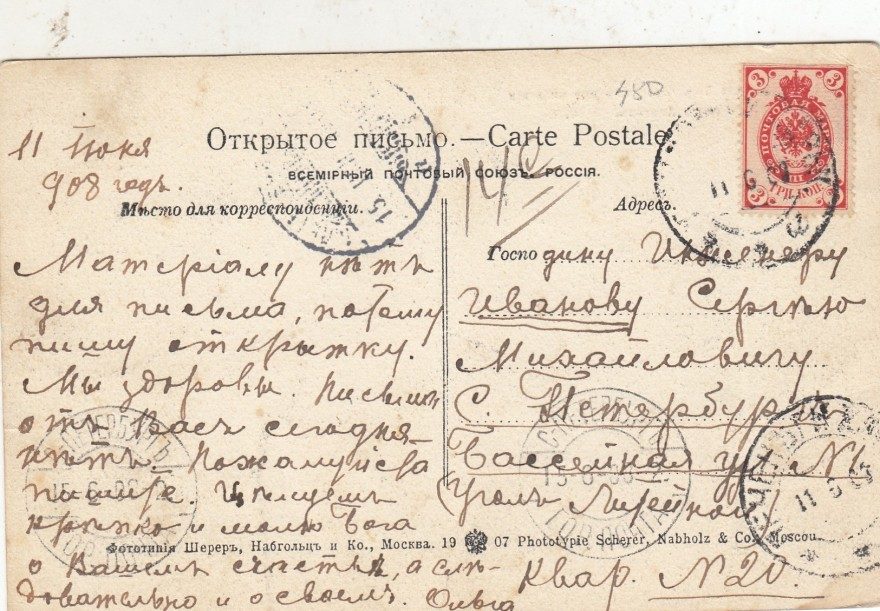 450
Открытое письмо.—Carte Postale
ВСЕМІРНЫЙ ПОЧТОВЫЙ СОЮЗЪ. РОССІЯ.
11 Іюня
908 годъ.
Мѣсто для корреспонденціи.
Адресъ.
3 3
ПОЧТОВАЯ МАРКА
ТРИ КОП.
3 3
Матеріалу нѣтъ
для письма, потому
пишу открытку.
Мы здоровы. Письма
отъ Васъ сегодня
нѣтъ. Пожалуйста
пишите. Цѣлуемъ
крѣпко и молю Бога
о Вашемъ счастьѣ, а слѣ-
довательно и о своемъ. Ольга
Господину Инженеру
Иванову Сергѣю
Михайловичу
С. Петербургъ
Бассейная ул. №1
(уголъ Литейной)
Квар. №20.
Фототипія Шереръ, Набгольцъ и Ко., Москва. 19 07 Phototypie Scherer, Nabholz & Co. Moscou.
С.ПЕТЕРБУРГЪ
15 6 08
ГОР.ПОЧТА
С.ПЕТЕРБУРГЪ
15-6-08
ГОР.ПОЧТА